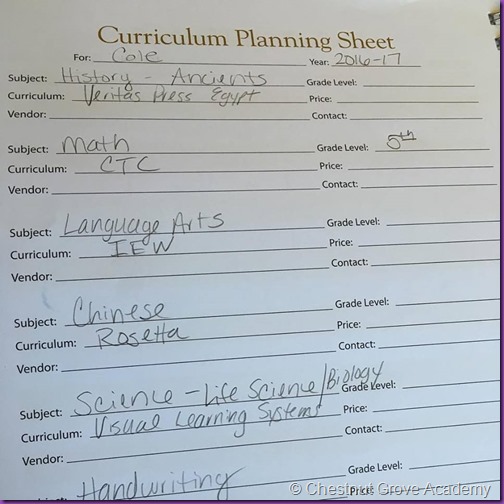 Curriculum Planning Sheet
For: Cole Year: 2016-17
Subject: History - Ancients Grade Level:
Curriculum: Veritas Press Egypt Price:
Vendor: Contact:
Subject: Math Grade Level: 5th
Curriculum: CTC Price:
Vendor: Contact:
Subject: Language Arts Grade Level:
Curriculum: IEW Price:
Vendor: Contact:
Subject: Chinese Grade Level:
Curriculum: Rosetta Price:
Vendor: Contact:
Subject: Science - Life Science/Biology Grade Level:
Curriculum: Visual Learning Systems Price:
Vendor: Contact:
Subject: Handwriting Grade Level:
Price:
© Chestnut Grove Academy